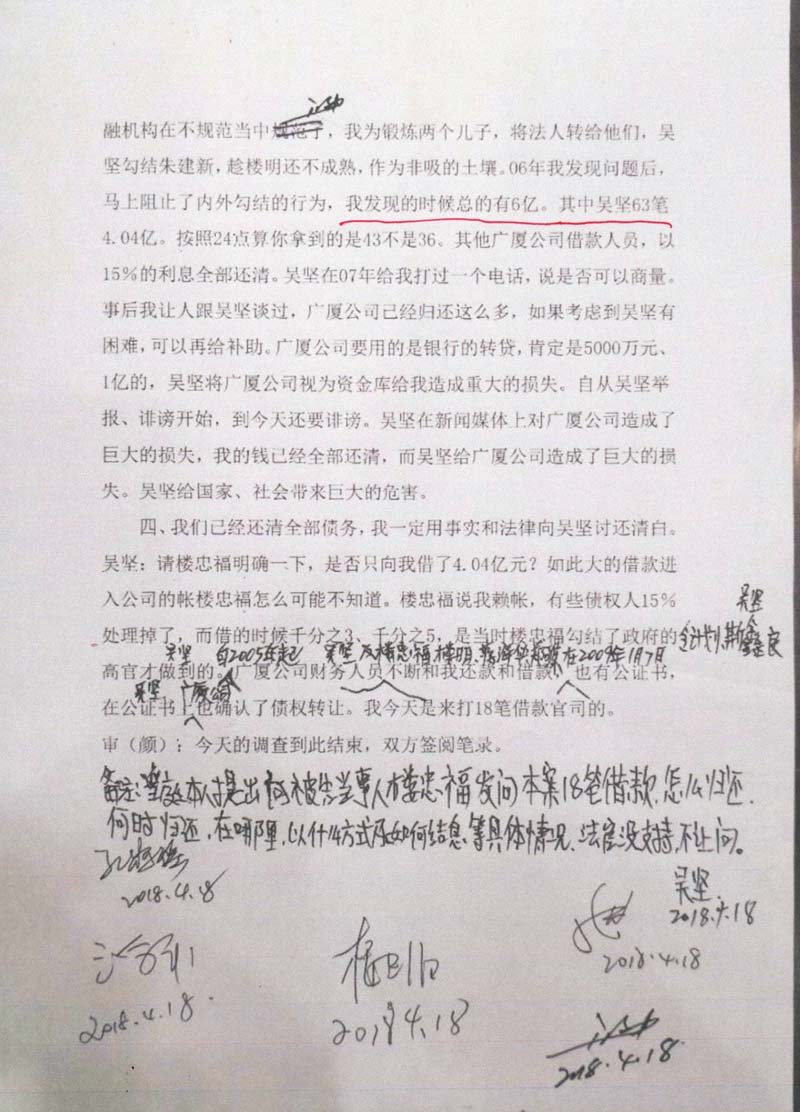 融机构在不规范当中规范了，我为锻炼两个儿子，将法人转给他们，吴
坚勾结朱建新，趁楼明还不成熟，作为非吸的土壤。06年我发现问题后，
马上阻止了内外勾结的行为，我发现的时候总的有6亿。其中吴坚63笔
4.04亿。按照24点算你拿到的是43不是36。其他广厦公司借款人员，以
15%的利息全部还清。吴坚在07年给我打过一个电话，说是否可以商量。
事后我让人跟吴坚谈过，广厦公司已经归还这么多，如果考虑到吴坚有
困难，可以再给补助。广厦公司要用的是银行的转贷，肯定是5000万元、
1亿的，吴坚将广厦公司视为资金库给我造成重大的损失。自从吴坚举
报、诽谤开始，到今天还要诽谤。吴坚在新闻媒体上对广厦公司造成了
巨大的损失，我的钱已经全部还清，而吴坚给广厦公司造成了巨大的损
失。吴坚给国家、社会带来巨大的危害。
四、我们已经还清全部债务，我一定用事实和法律向吴坚讨还清白。
吴坚：请楼忠福明确一下，是否只向我借了4.04亿元？如此大的借款进
入公司的帐楼忠福怎么可能不知道。楼忠福说我赖帐，有些债权人15%
吴坚
处理掉了，而借的时候千分之3、千分之5，是当时楼忠福勾结了政府的
吴坚 自2005年起 吴坚及楼忠福、楼明、在2009年1月7日
高官才做到的。广厦公司财务人员不断和我还款和借款，也有公证书，
吴坚 广厦公司
在公证书上也确认了债权转让。我今天是来打18笔借款官司的。
审（颜）：今天的调查到此结束，双方签阅笔录。
备注：当庭本人提出向被告当事人楼忠福发问本案18笔借款，怎么归还，
何时归还，在哪里，以什么方式及如何结息等具体情况，法官没支持，不让问。
2018.4.18
吴坚
2018.4.18
2018.4.18
2018.4.18
楼明
2018 4.18
2018.4.18